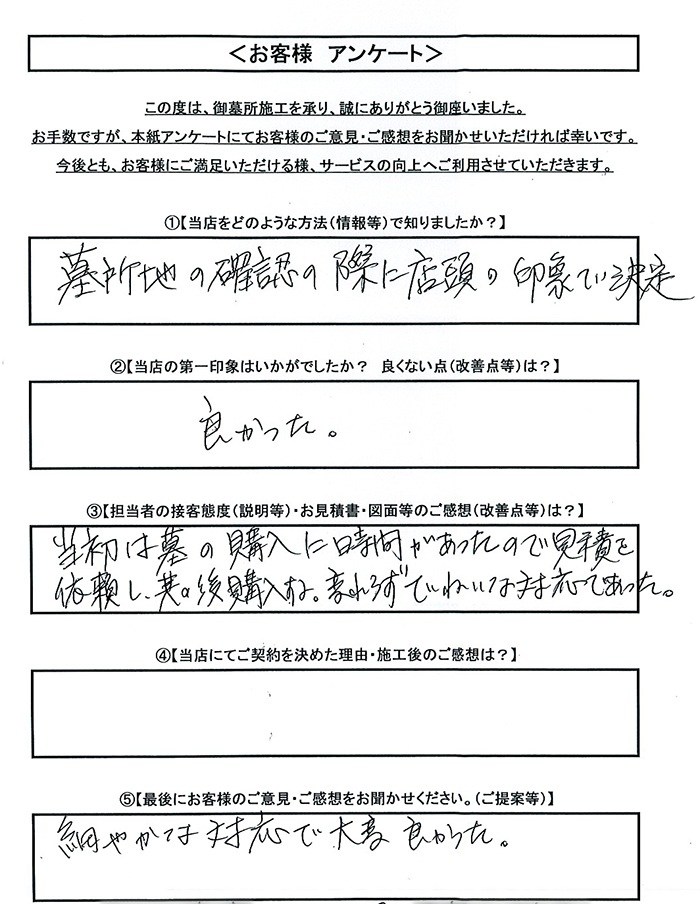 ＜お客様 アンケート＞
この度は、御墓所施工を承り、誠にありがとう御座いました。
お手数ですが、本紙アンケートにてお客様のご意見・ご感想をお聞かせいただければ幸いです。
今後とも、お客様にご満足いただける様、サービスの向上へご利用させていただきます。
①【当店をどのような方法（情報等）で知りましたか？】
墓所地の確認の際に店頭の印象で決定
②【当店の第一印象はいかがでしたか？ 良くない点（改善点等）は？】
良かった。
③【担当者の接客態度（説明等）・お見積書・図面等のご感想（改善点等）は？】
当初は墓の購入に時間があったので見積を
依頼し、其の後購入する。変わらずていねいな対応であった。
④【当店にてご契約を決めた理由・施工後のご感想は？】
⑤【最後にお客様のご意見・ご感想をお聞かせください。（ご提案等）】
細やかな対応で大変良かった。